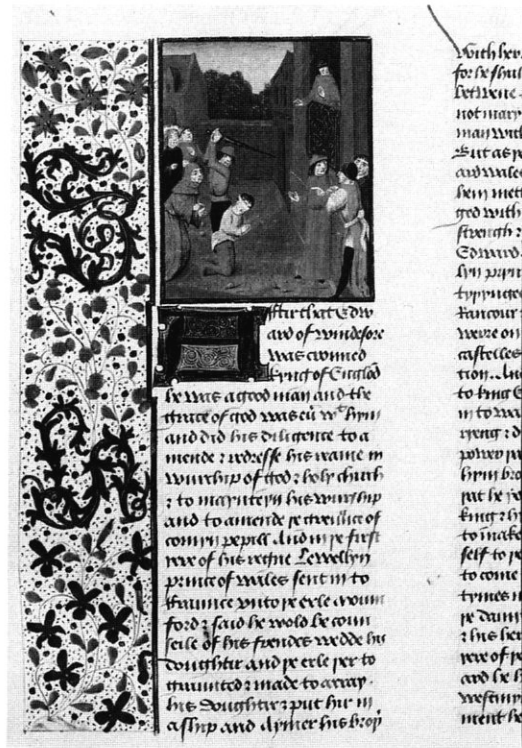 After that Edw
ard of windesore
was crouned
kyng of Englond
he was a good man and the
grace of god was eu wt hym
and did his diligence to a
mende ⁊ redresse his reame in
wurship of god ⁊ holy church
⁊ to maynteyn his wurship
and to amende þe grevance of
comyn pepill And in þe first
yere of his regne Lewellyn
prince of wales sent in to
fraunce vnto þe erle mount
ford ⁊ said he wold be coun
seile of his frendes wedde his
doughtir and þe erle þer to
graunted ⁊ made to array
his doughtir ⁊ put hir in
a ship and Aymer his broþ
with her
for he shul
betwene
not mary
man with
But as
and wales
hem mett
ged with
strength ⁊
Edward
lyn prin
Rancour
were on
castelles
tion. An
to kyng E
in to wa
power
hym bro
þat he
kyng ⁊ h
to make
self to þe
to come
tymes
þe
⁊ his
yere of þe
and he h
westmyn
ment he